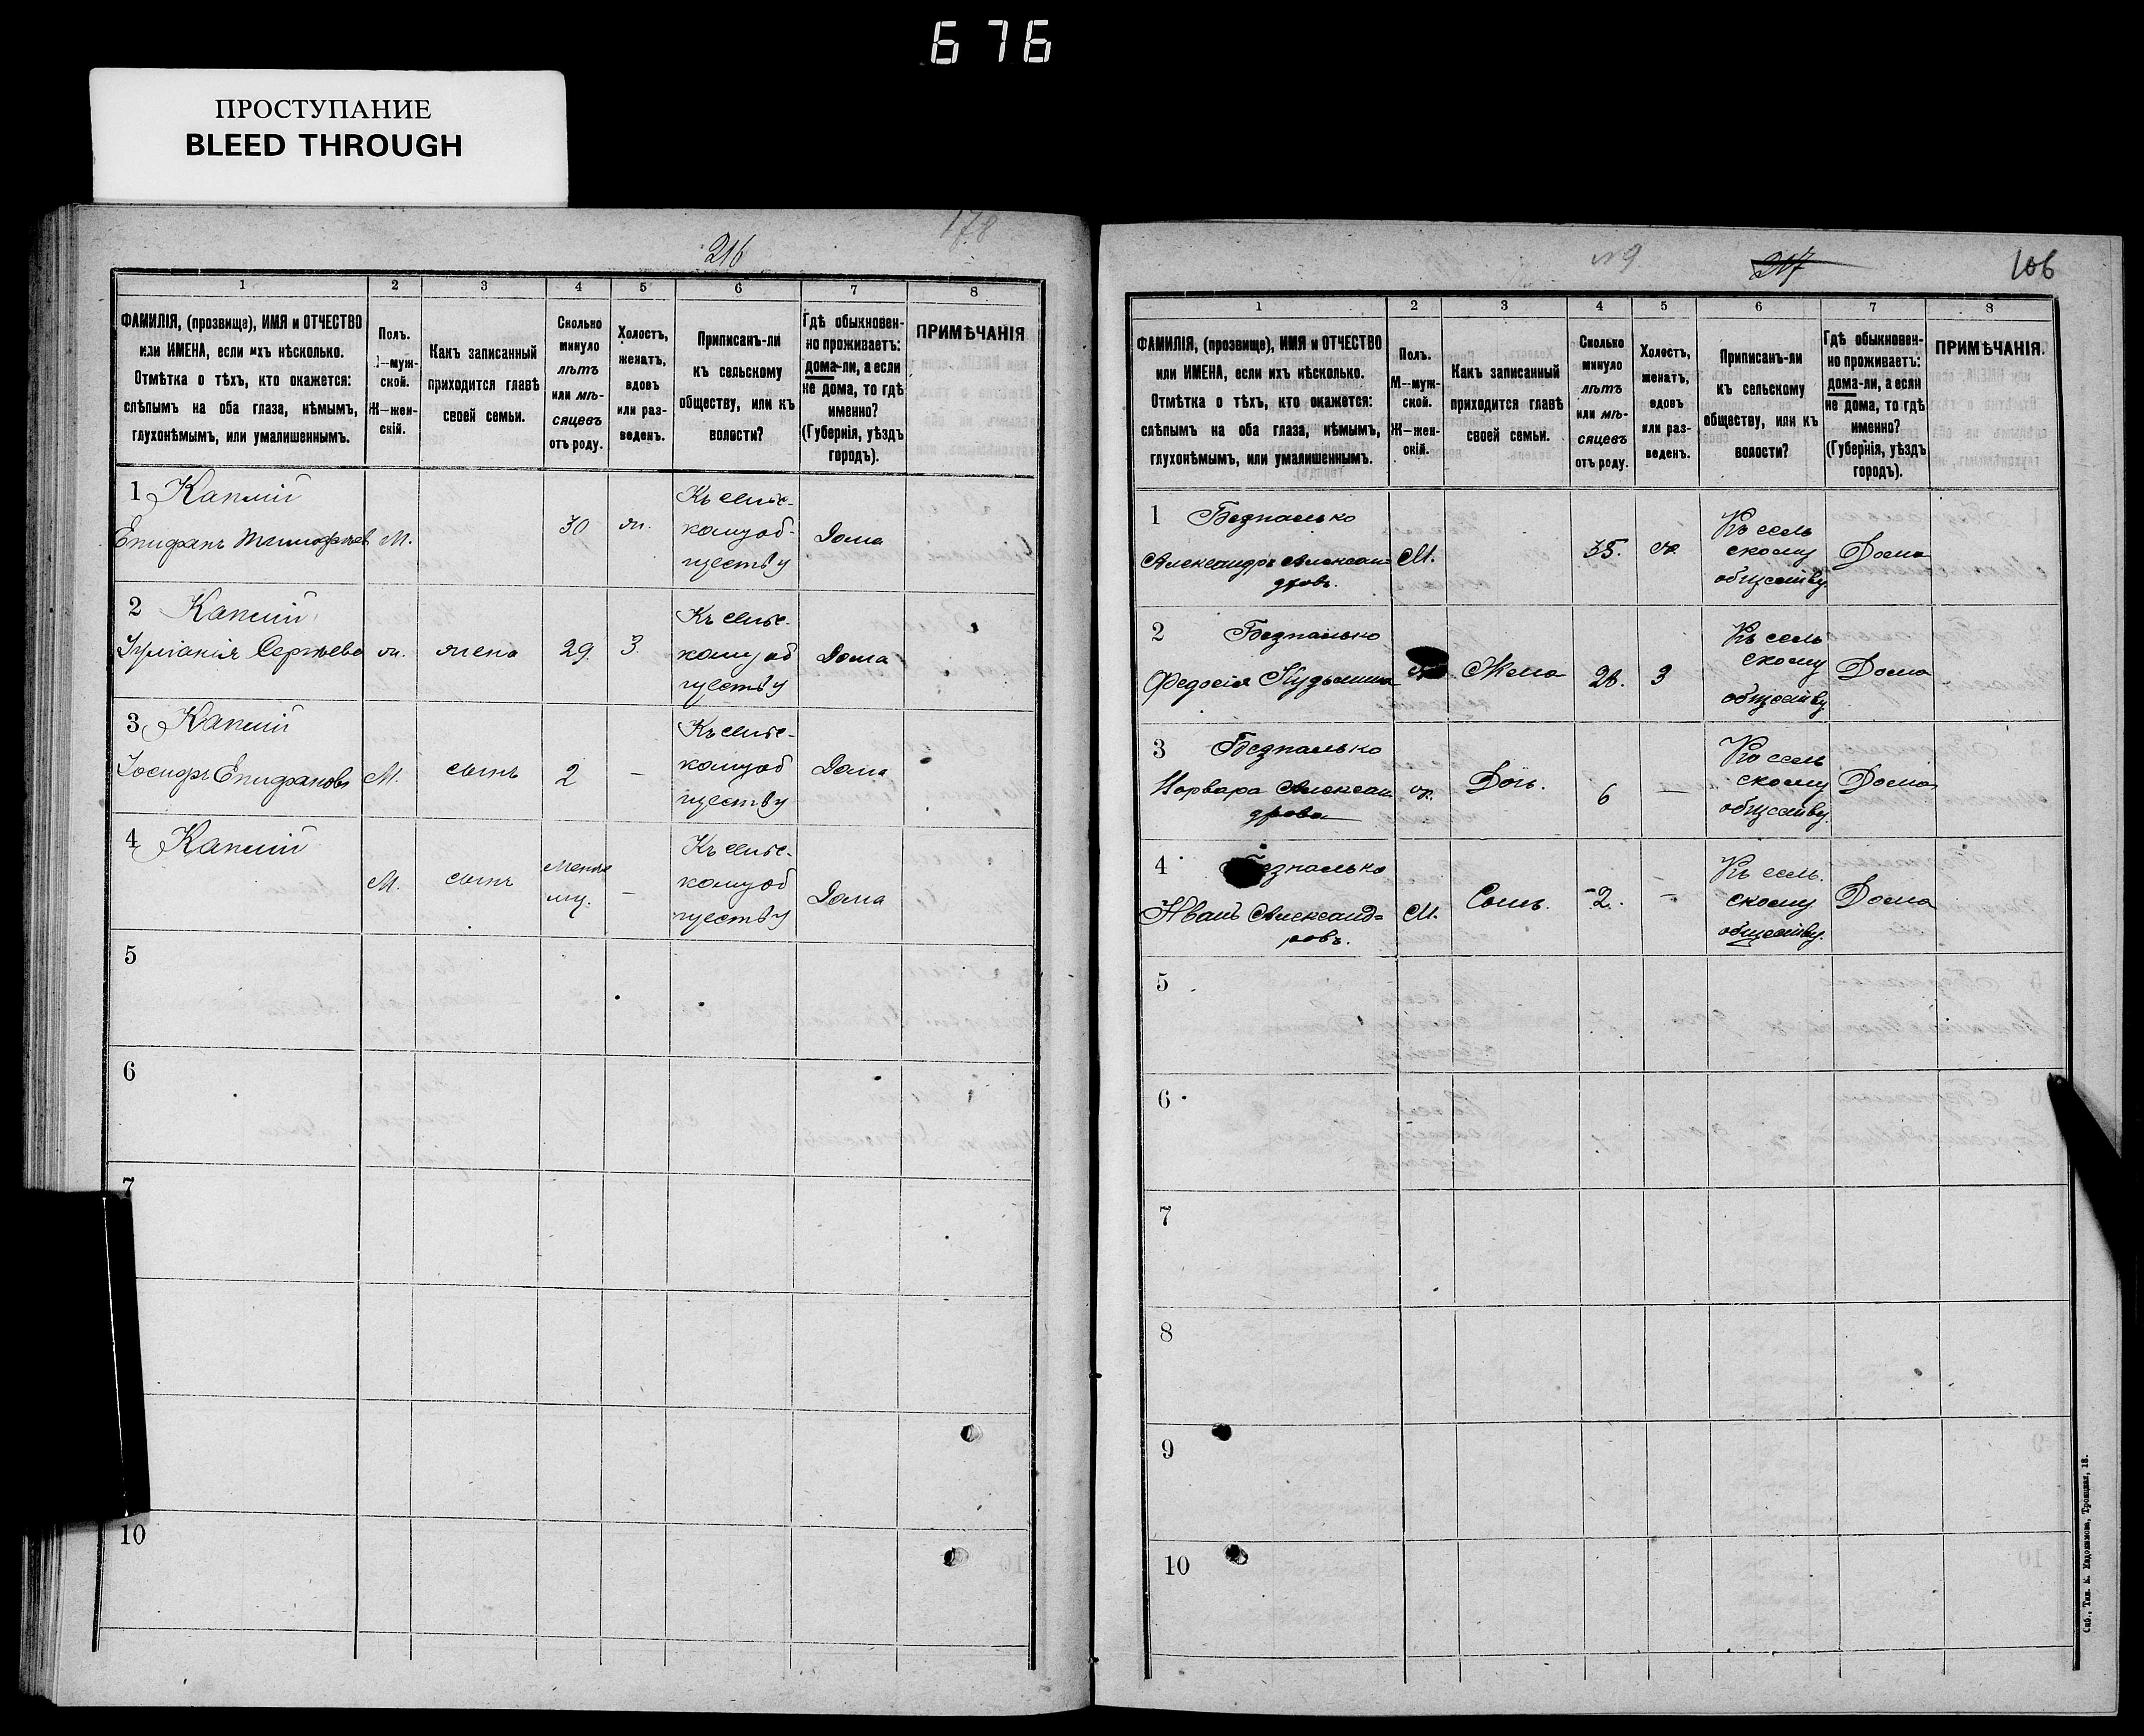 676
ПРОСТУПАНИЕ
BLEED THROUGH
178
216
1 2 3 4 5 6 7 8
ФАМИЛІЯ, (прозвище), ИМЯ и ОТЧЕСТВО
или ИМЕНА, если ихъ нѣсколько.
Отмѣтка о тѣхъ, кто окажется:
слѣпымъ на оба глаза, нѣмымъ,
глухонѣмымъ, или умалишеннымъ.
Полъ.
М—муж-
ской.
Ж—жен-
скій.
Какъ записанный
приходится главѣ
своей семьи.
Сколько
минуло
лѣтъ
или мѣ-
сяцевъ
отъ роду.
Холостъ,
женатъ,
вдовъ
или раз-
веденъ.
Приписанъ-ли
къ сельскому
обществу, или къ
волости?
Гдѣ обыкновен-
но проживаетъ:
дома-ли, а если
не дома, то гдѣ
именно?
(Губернія, уѣздъ
городъ).
ПРИМѢЧАНІЯ
1 Каплій
Епифанъ Тимофѣевъ М. 30 ж. Къ сельс-
кому об-
ществу Дома
2 Каплій
Сергѣева ж. жена 29. З. Къ сельс-
кому об
ществу Дома
3 Каплій
Іосифъ Епифановъ М. сынъ 2 — Къ сельс-
кому об
ществу Дома
4 Каплій
М. сынъ — Къ сельс-
кому об
ществу Дома
5
6
7
10
106
1 2 3 4 5 6 7 8
ФАМИЛІЯ, (прозвище), ИМЯ и ОТЧЕСТВО
или ИМЕНА, если ихъ нѣсколько.
Отмѣтка о тѣхъ, кто окажется:
слѣпымъ на оба глаза, нѣмымъ,
глухонѣмымъ, или умалишеннымъ.
Полъ.
М—муж-
ской.
Ж—жен-
скій.
Какъ записанный
приходится главѣ
своей семьи.
Сколько
минуло
лѣтъ
или мѣ-
сяцевъ
отъ роду.
Холостъ,
женатъ,
вдовъ
или раз-
веденъ.
Приписанъ-ли
къ сельскому
обществу, или къ
волости?
Гдѣ обыкновен-
но проживаетъ:
дома-ли, а если
не дома, то гдѣ
именно?
(Губернія, уѣздъ
городъ).
ПРИМѢЧАНІЯ.
1 Безпалько
Александръ Алексан-
дровъ. М. 35. ж. Къ сель
скому
обществу. Дома
2 Безпалько
Федосія Кузьмина Жена 28. З Къ сель
скому
обществу. Дома
3 Безпалько
Варвара Алексан
дрова ж. Дочь. 6 — Къ сель
скому
обществу. Дома
4 Безпалько
Иванъ Александ=
ровъ. М. Сынъ. 2. - Къ сель.
скому
обществу. Дома
5
6
7
8
9
10
Спб., Тип. К. Евдокимова, Троицкая, 18.